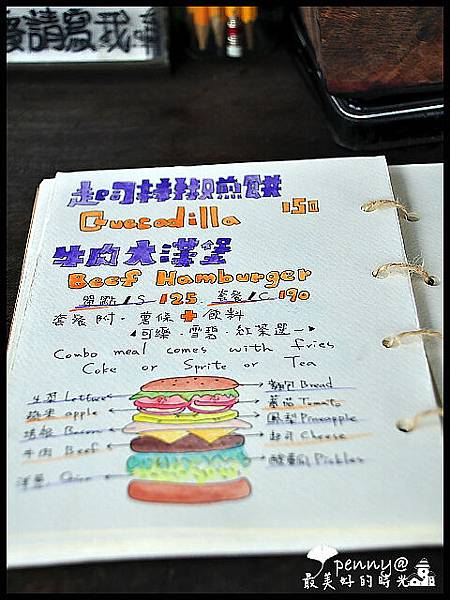 請寫我
起司辣椒煎餅
Quecadilla 150
牛肉大漢堡
Beef Hamburger
單點/S 125. 套餐/C 190
套餐附·薯條+飲料
可樂·雪碧·紅茶選一
Combo meal comes with fries
Coke or Sprite or Tea
生菜 Lettuce 麵包 Bread
apple 蕃茄 Tomato
培根 Bacon 鳳梨 Pineapple
牛肉 Beef 起司 Cheese
洋蔥 酸黃瓜 Pickles
penny@
最美好的時光